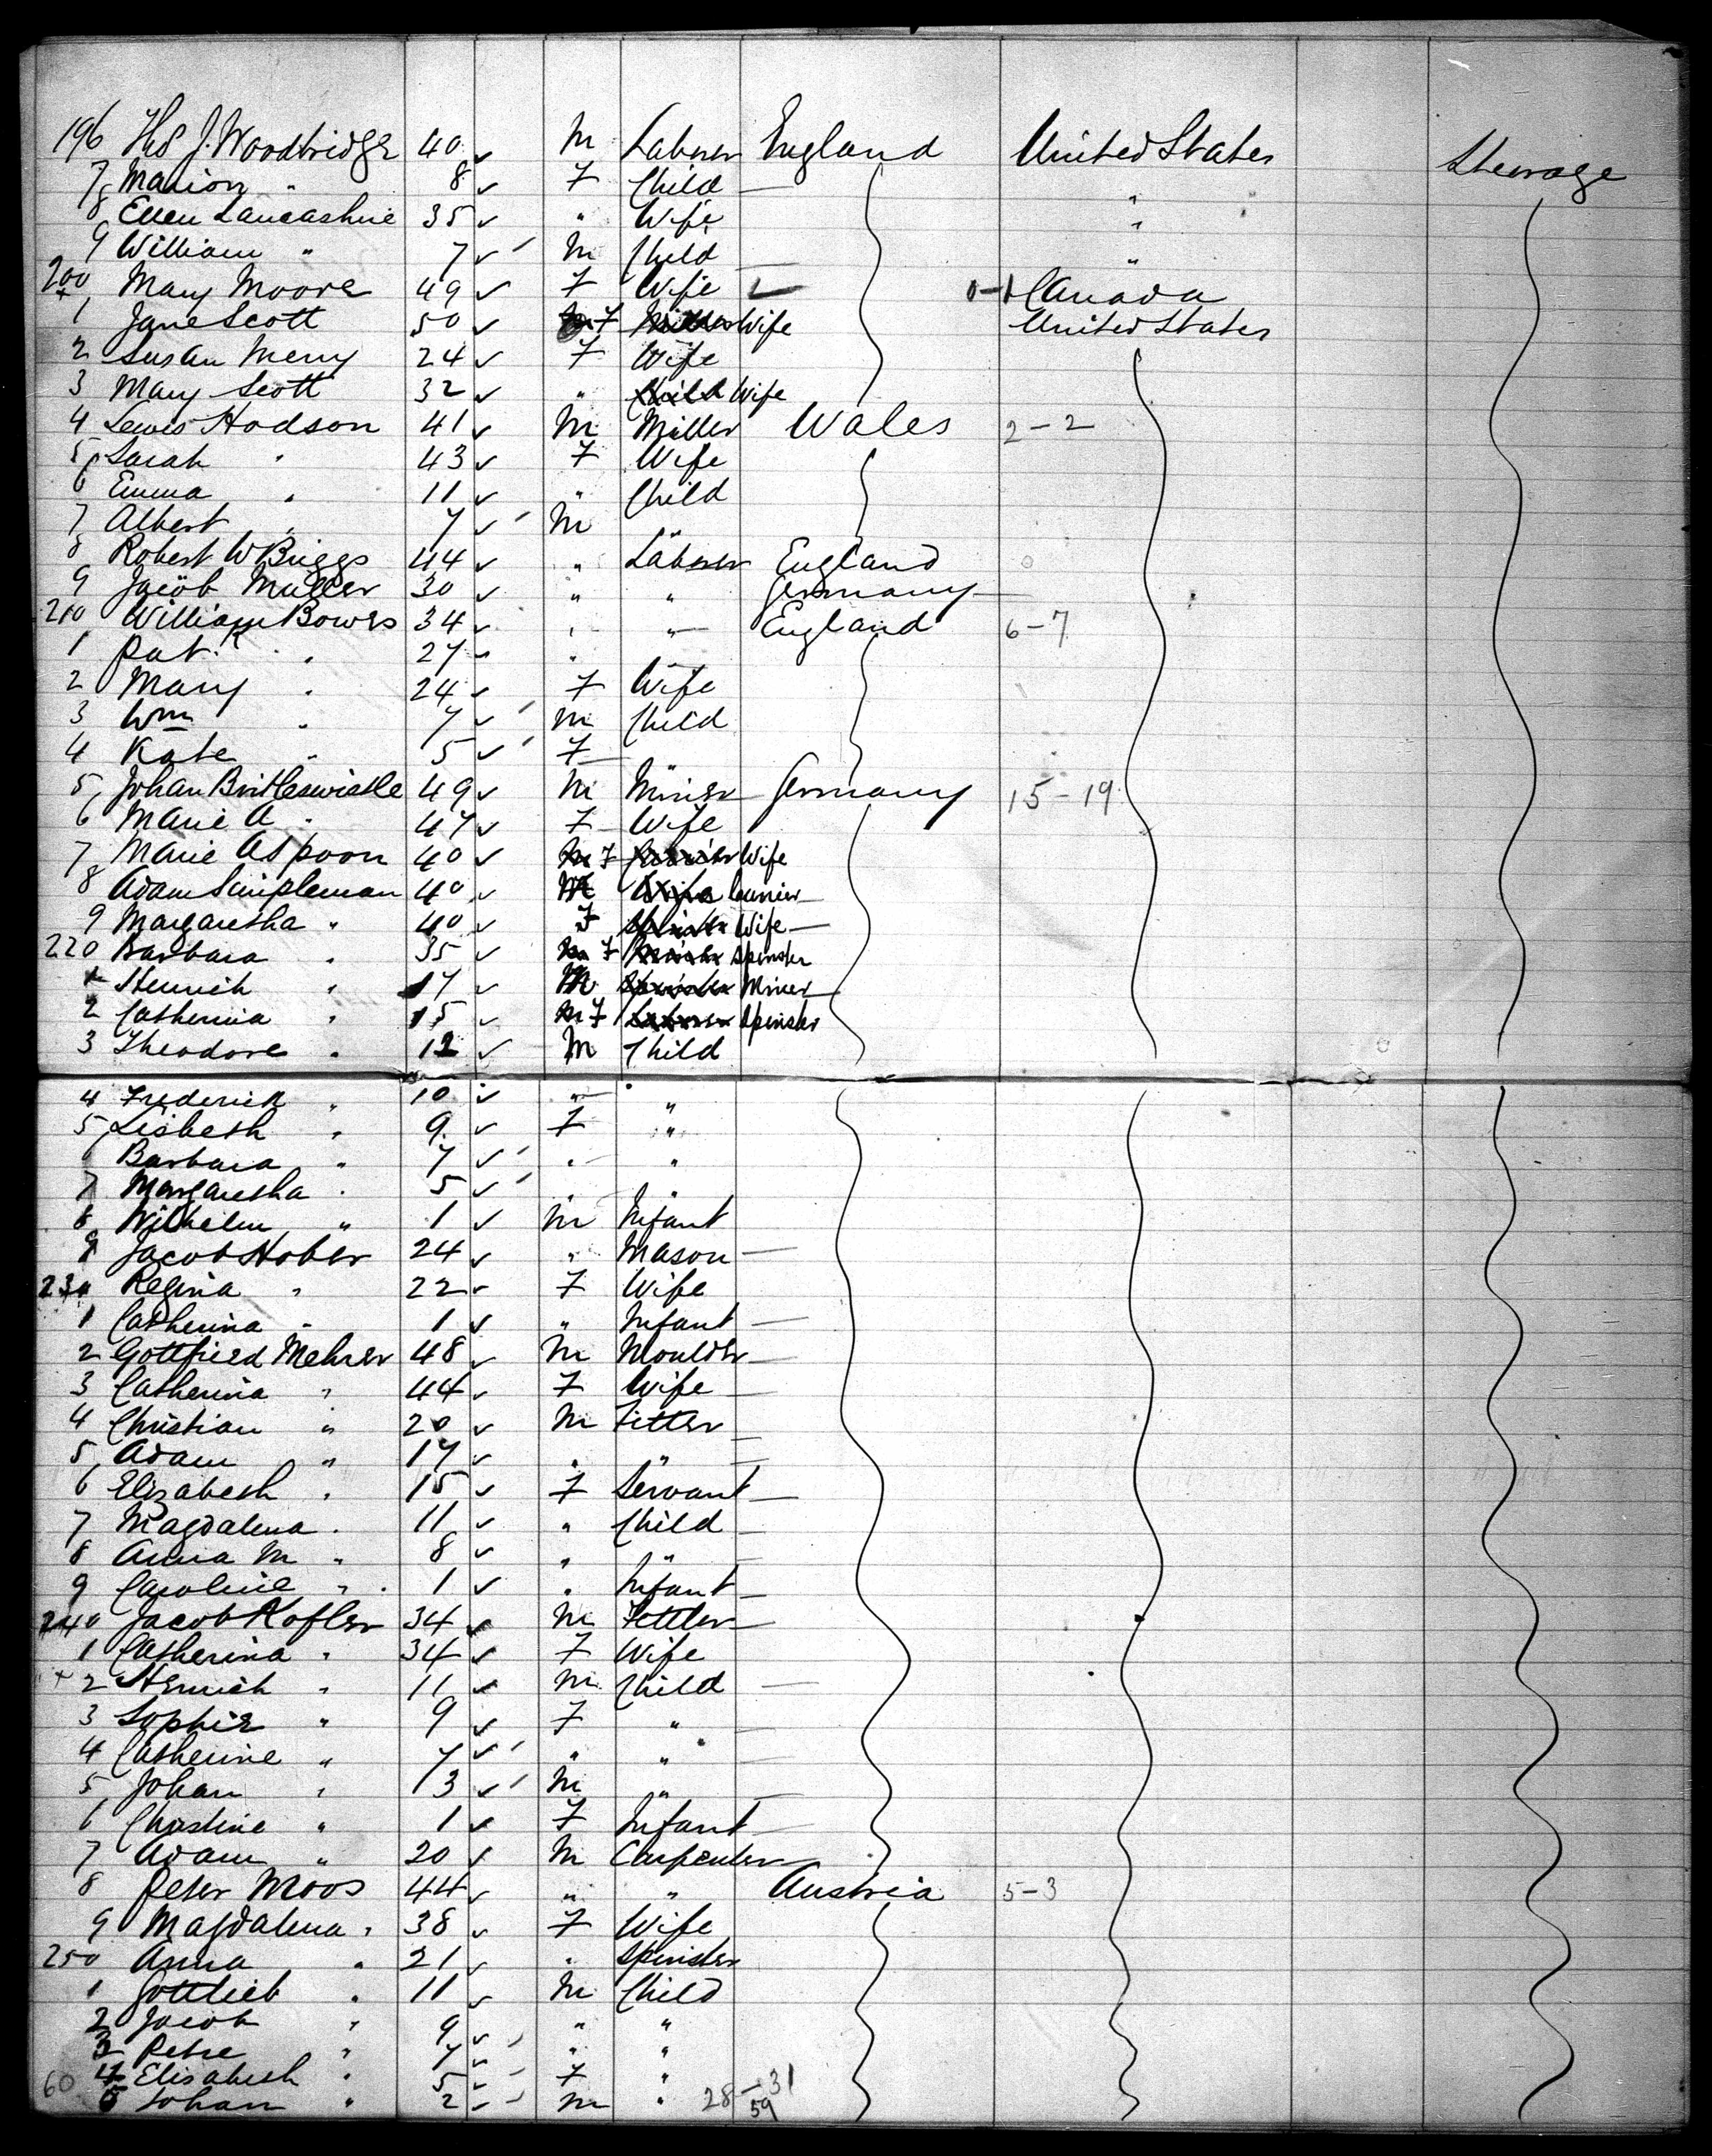 196 Thos J. Woodbridge 40 ✓ M Laborer England United States Steerage
7 Marion " 8 ✓ F Child — "
8 Ellen Lancashire 35 ✓ " Wife "
9 William " 7 ✓ M Child — "
200 Mary Moore 49 ✓ F Wife Canada
1 Jane Scott 50 ✓ F Wife United States
2 Susan Merry 24 ✓ F Wife
3 Mary Scott 32 ✓ " Wife
4 Lewis Hodson 41 ✓ M Miller Wales 2-2
5 Sarah " 43 ✓ F Wife
6 Emma " 11 ✓ " Child
7 Albert " 7 ✓ M "
8 Robert W Briggs 44 ✓ " Laborer England
9 Jacob Muller 30 ✓ " " Germany —
210 William Bowes 34 ✓ " " England 6-7
1 Pat. " 27 ✓ "
2 Mary " 24 ✓ F Wife
3 Wm " 7 ✓ M Child
4 Kate " 5 ✓ F "
5 Johan 49 ✓ M Miner Germany 15-19
6 Marie A " 47 ✓ F Wife
7 Marie 40 ✓ F Wife
8 Adam Simpleman 40 ✓ M —
9 Margaretha " 40 ✓ F Wife —
220 Barbara " 35 ✓ F Spinster
1 Heinrich " 17 ✓ M Miner —
2 Catherina " 15 ✓ F Spinster
3 Theodore " 12 ✓ M Child
4 Frederick " 10 ✓ " "
5 Lisbeth " 9 ✓ F "
6 Barbara " 7 ✓ " "
7 Margaretha " 5 ✓ " "
8 Wilhelm " 1 ✓ M Infant
9 Jacob Hober 24 ✓ " Mason —
230 Regina " 22 ✓ F Wife
1 Catherina " 1 ✓ " Infant —
2 Gottfried Mehrer 48 ✓ M Moulder —
3 Catherina " 44 ✓ F Wife —
4 Christian " 20 ✓ M Fitter —
5 Adam " 17 ✓ " " —
6 Elizabeth " 15 ✓ F Servant —
7 Magdalena " 11 ✓ " Child —
8 Anna M " 8 ✓ " " —
9 Caroline " 1 ✓ " Infant —
240 Jacob Kofler 34 ✓ M Fettler —
1 Catherina " 34 ✓ F Wife
2 Heinrich " 11 ✓ M Child —
3 Sophie " 9 ✓ F " —
4 Catherine " 7 ✓ " " —
5 Johan " 3 ✓ M " —
6 Christine " 1 ✓ F Infant —
7 Adam " 20 ✓ M Carpenter —
8 Peter Moos 44 ✓ " " Austria 5-3
9 Magdalena " 38 ✓ F Wife
250 Anna " 21 ✓ " Spinster
1 Gottlieb " 11 ✓ M Child
2 Jacob " 9 ✓ " "
3 Petre " 7 ✓ " "
4 Elisabeth " 5 ✓ F "
60 5 Johan " 2 ✓ M " 28-31
59